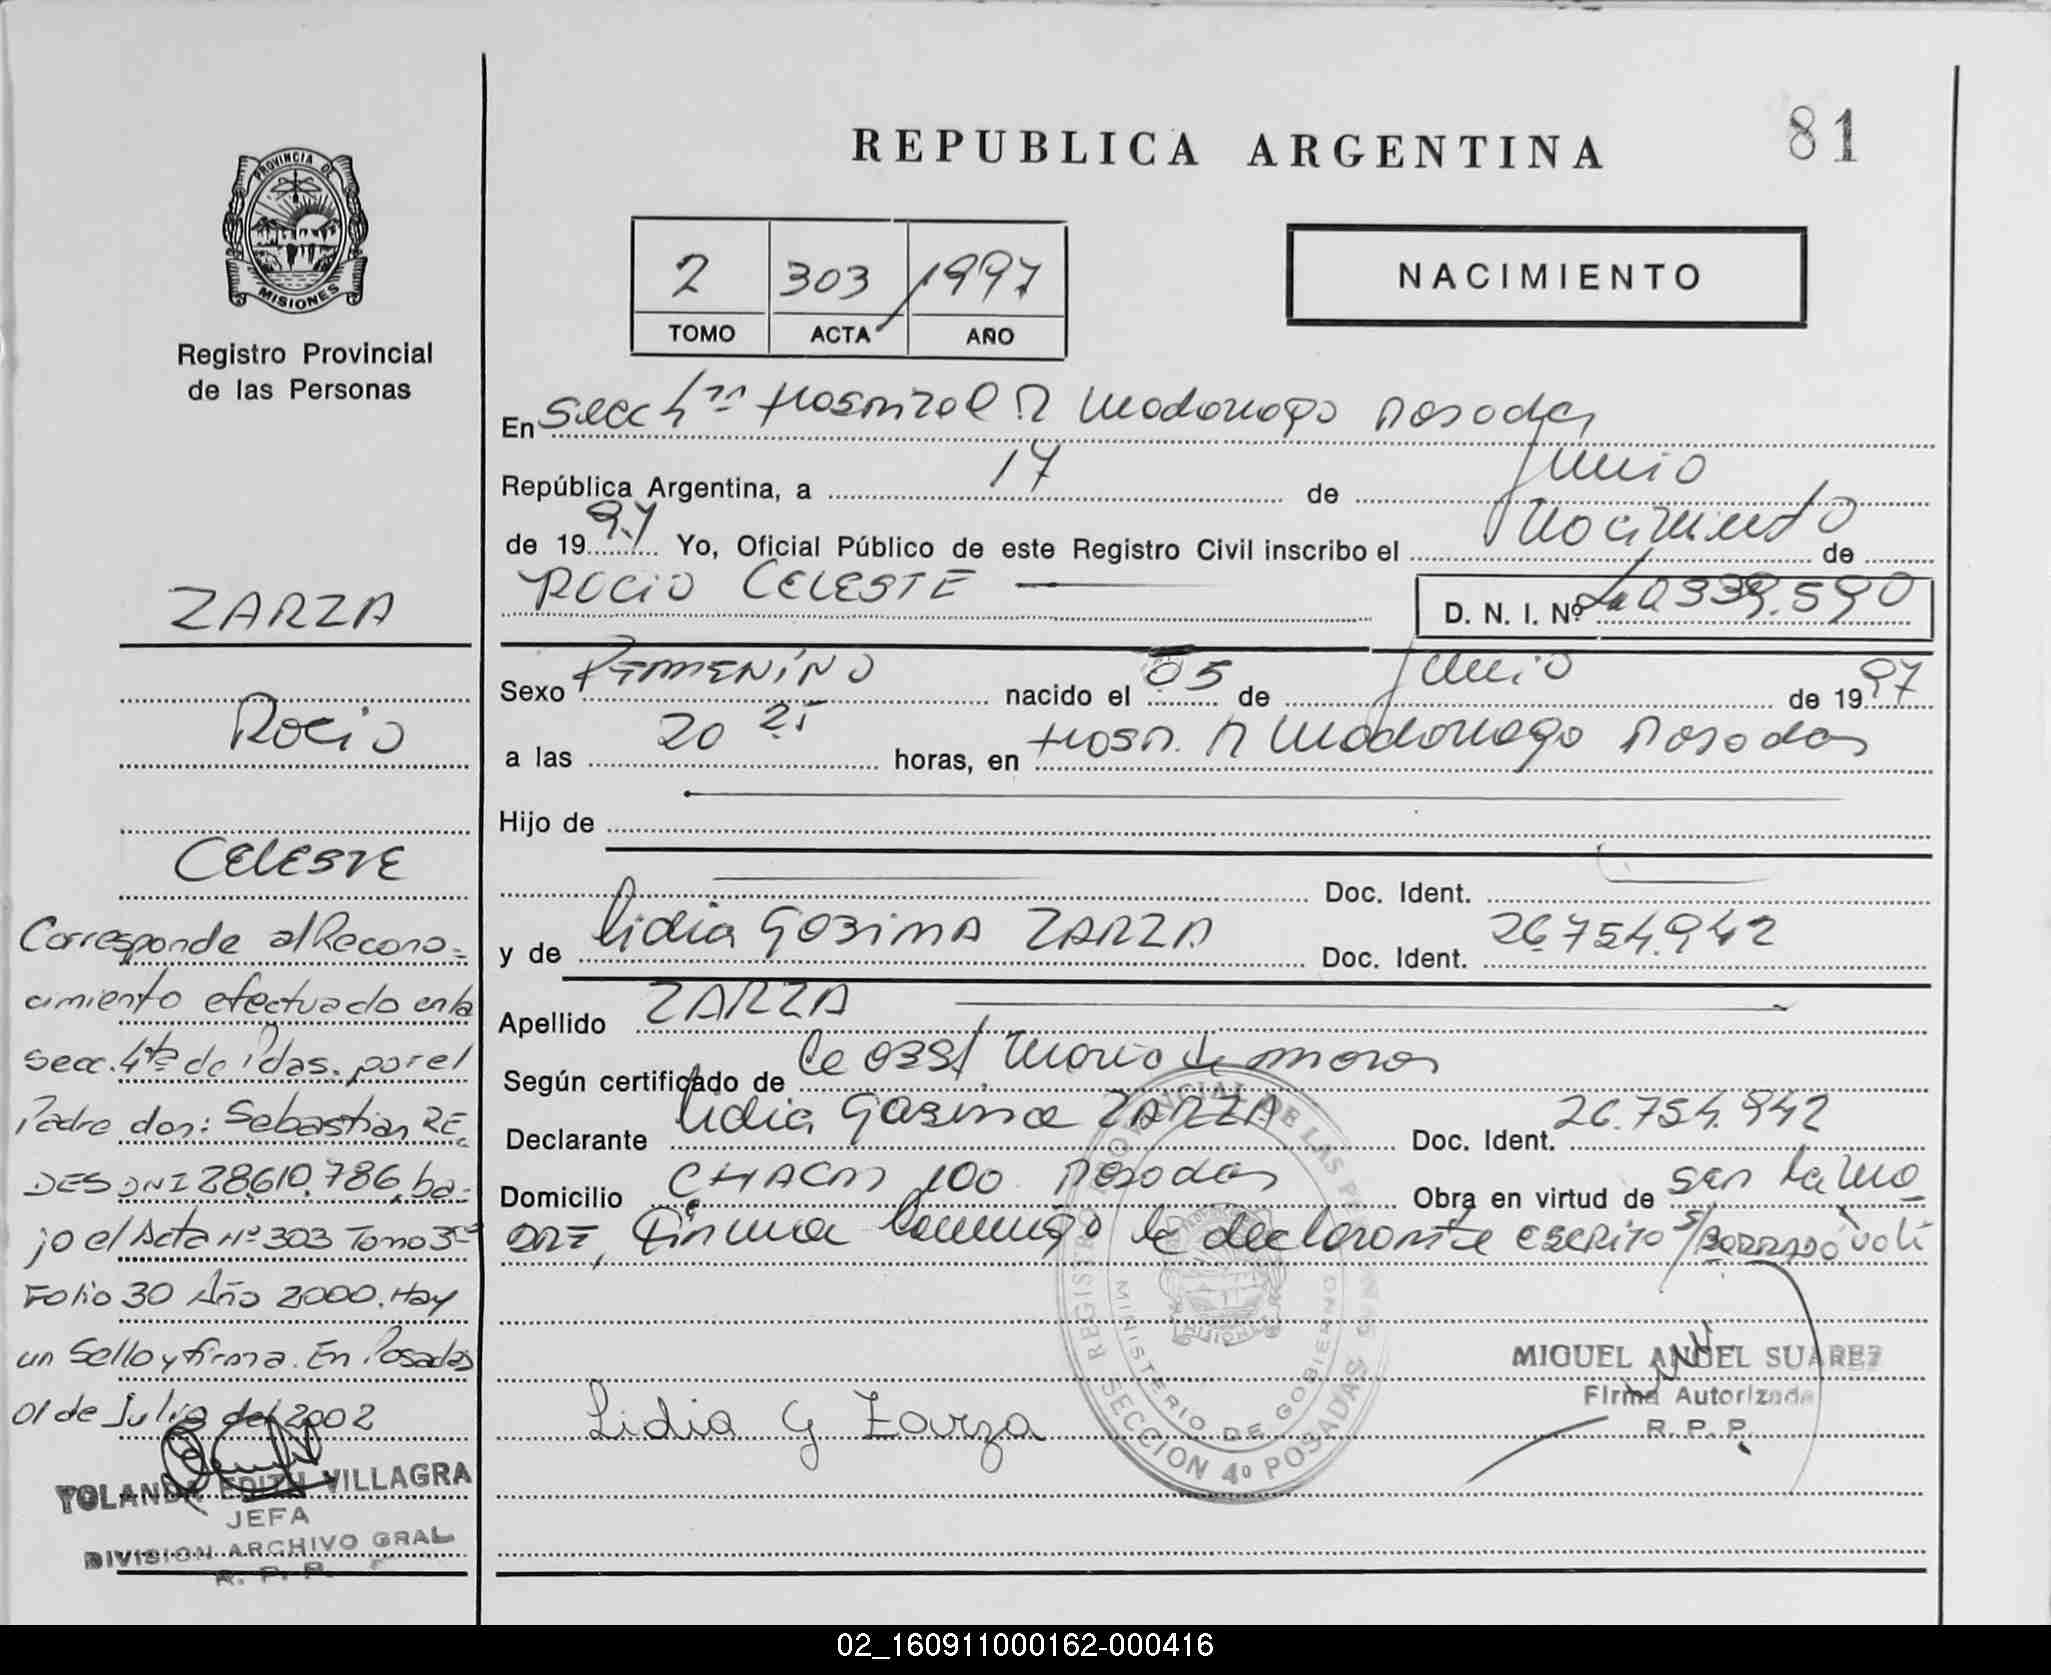 81
REPUBLICA ARGENTINA
PROVINCIA DE
MISIONES
Registro Provincial
de las Personas
2 303 1997
TOMO ACTA AÑO
NACIMIENTO
En Secc 4ta Hospital R Madariaga Posadas
República Argentina, a 17 de Junio
de 1997 Yo, Oficial Público de este Registro Civil inscribo el Nacimiento de
ROCIO CELESTE D. N. I. Nº 40.339.590
Sexo FEMENINO nacido el 05 de Junio de 1997
a las 20 25 horas, en Hosp. R Madariaga Posadas
Hijo de
Doc. Ident.
y de Lidia GOSIMA ZARZA Doc. Ident. 26.754.942
Apellido ZARZA
Según certificado de la Obst Mario de
Declarante Lidia Gosima ZARZA Doc. Ident. 26.754.942
Domicilio CHACO 100 Posadas Obra en virtud de ser la
Firma conmigo la declarante escrito s/BORRADO
Lidia G Zarza
MIGUEL ANGEL SUAREZ
Firma Autorizada
R. P. P.
REGISTRO PROVINCIAL DE LAS PERSONAS
MINISTERIO DE GOBIERNO
SECCION 4º POSADAS
MISIONES
ZARZA
Rocio
CELESTE
Corresponde al Recono=
cimiento efectuado en la
secc. 4ta de Pdas. por el
Padre don: Sebastian RE
DES DNI 28.610.786, ba-
jo el Acta nº 303 Tomo 3º
Folio 30 Año 2000. Hay
un Sello y firma. En Posadas
01 de Julio del 2002
YOLANDA EDITH VILLAGRA
JEFA
DIVISION ARCHIVO GRAL
R. P. P.
02_160911000162-000416